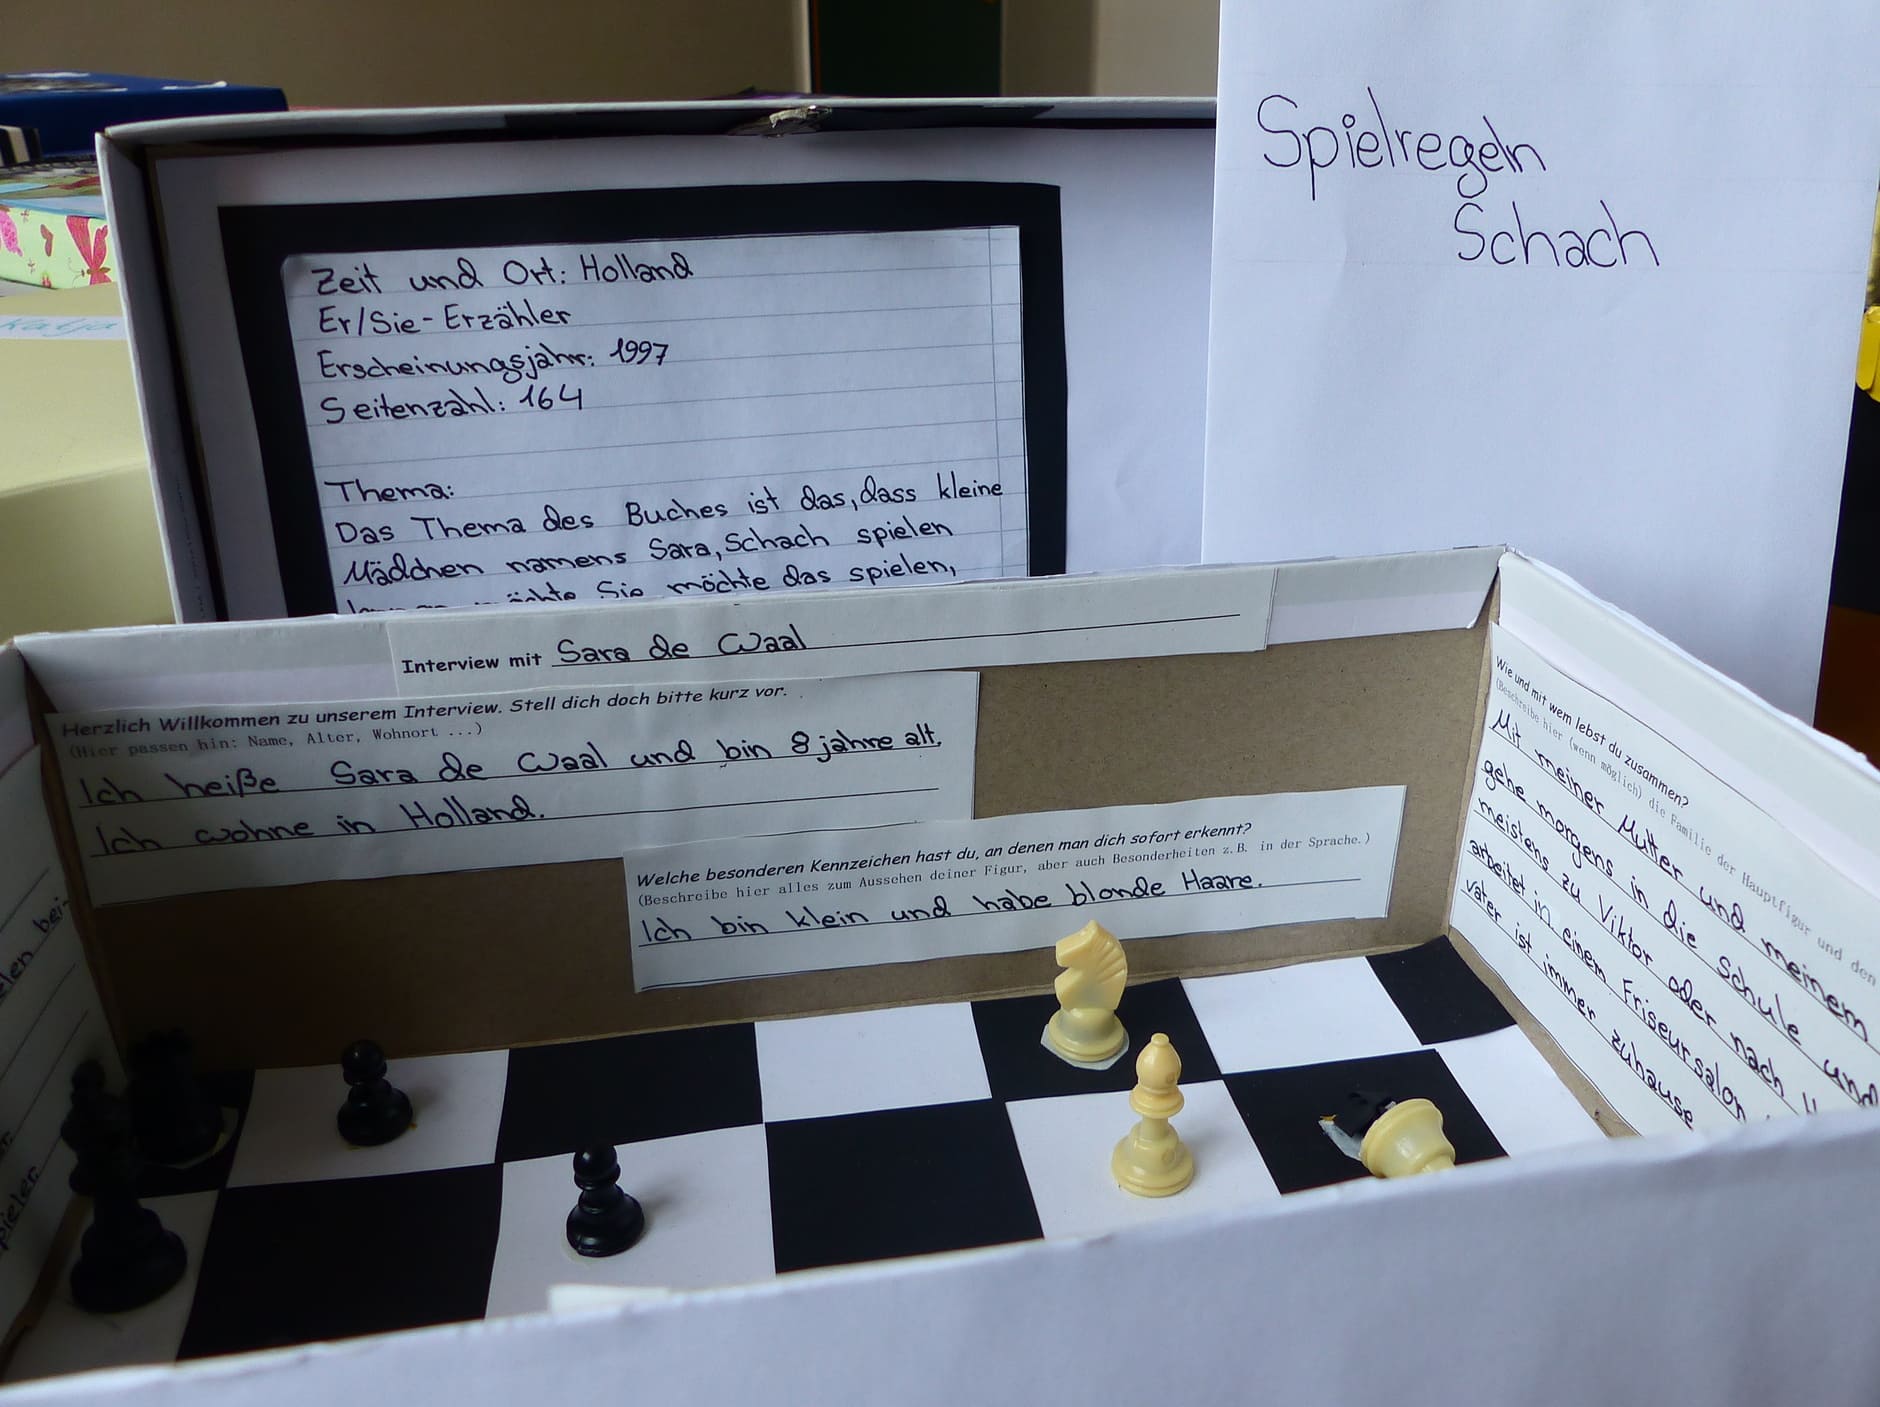 Spielregeln
Schach
Zeit und Ort: Holland
Er/Sie-Erzähler
Erscheinungsjahr: 1997
Seitenzahl: 164
Thema:
Das Thema des Buches ist das, dass kleine
Mädchen namens Sara, Schach spielen
möchte Sie möchte das spielen,
Interview mit Sara de Waal
Herzlich Willkommen zu unserem Interview. Stell dich doch bitte kurz vor.
(Hier passen hin: Name, Alter, Wohnort ...)
Ich heiße Sara de Waal und bin 8 jahre alt.
Ich wohne in Holland.
Welche besonderen Kennzeichen hast du, an denen man dich sofort erkennt?
(Beschreibe hier alles zum Aussehen deiner Figur, aber auch Besonderheiten z.B. in der Sprache.)
Ich bin klein und habe blonde Haare.
Wie und mit wem lebst du zusammen?
(Beschreibe hier (wenn möglich) die Familie der Hauptfigur und den
Mit meiner Mutter und meinem
gehe morgens in die Schule und
meistens zu Viktor oder nach
arbeitet in einem Friseursalon
vater ist immer zuhause
Katja